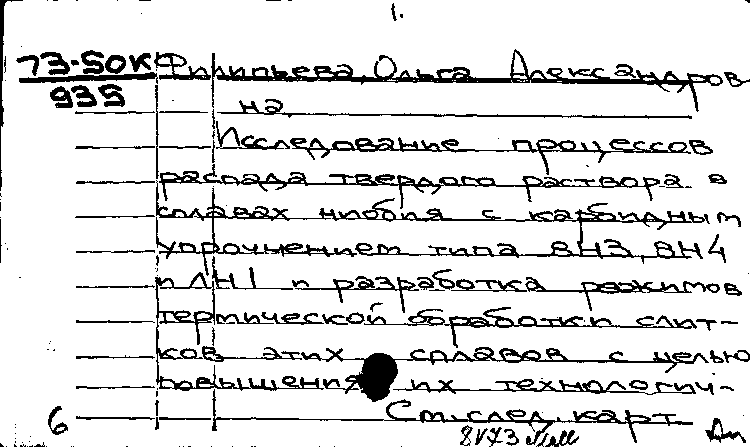 1.
73-50K Филипьева, Ольга Александров
935 на.
Исследование процессов
распада твердого раствора в
сплавах ниобия с карбидным
упрочнением типа ВН3, ВН4
и ЛН1 и разработка режимов
термической обработки слит-
ков этих сплавов с целью
повышения их технологич-
См. след. карт
6